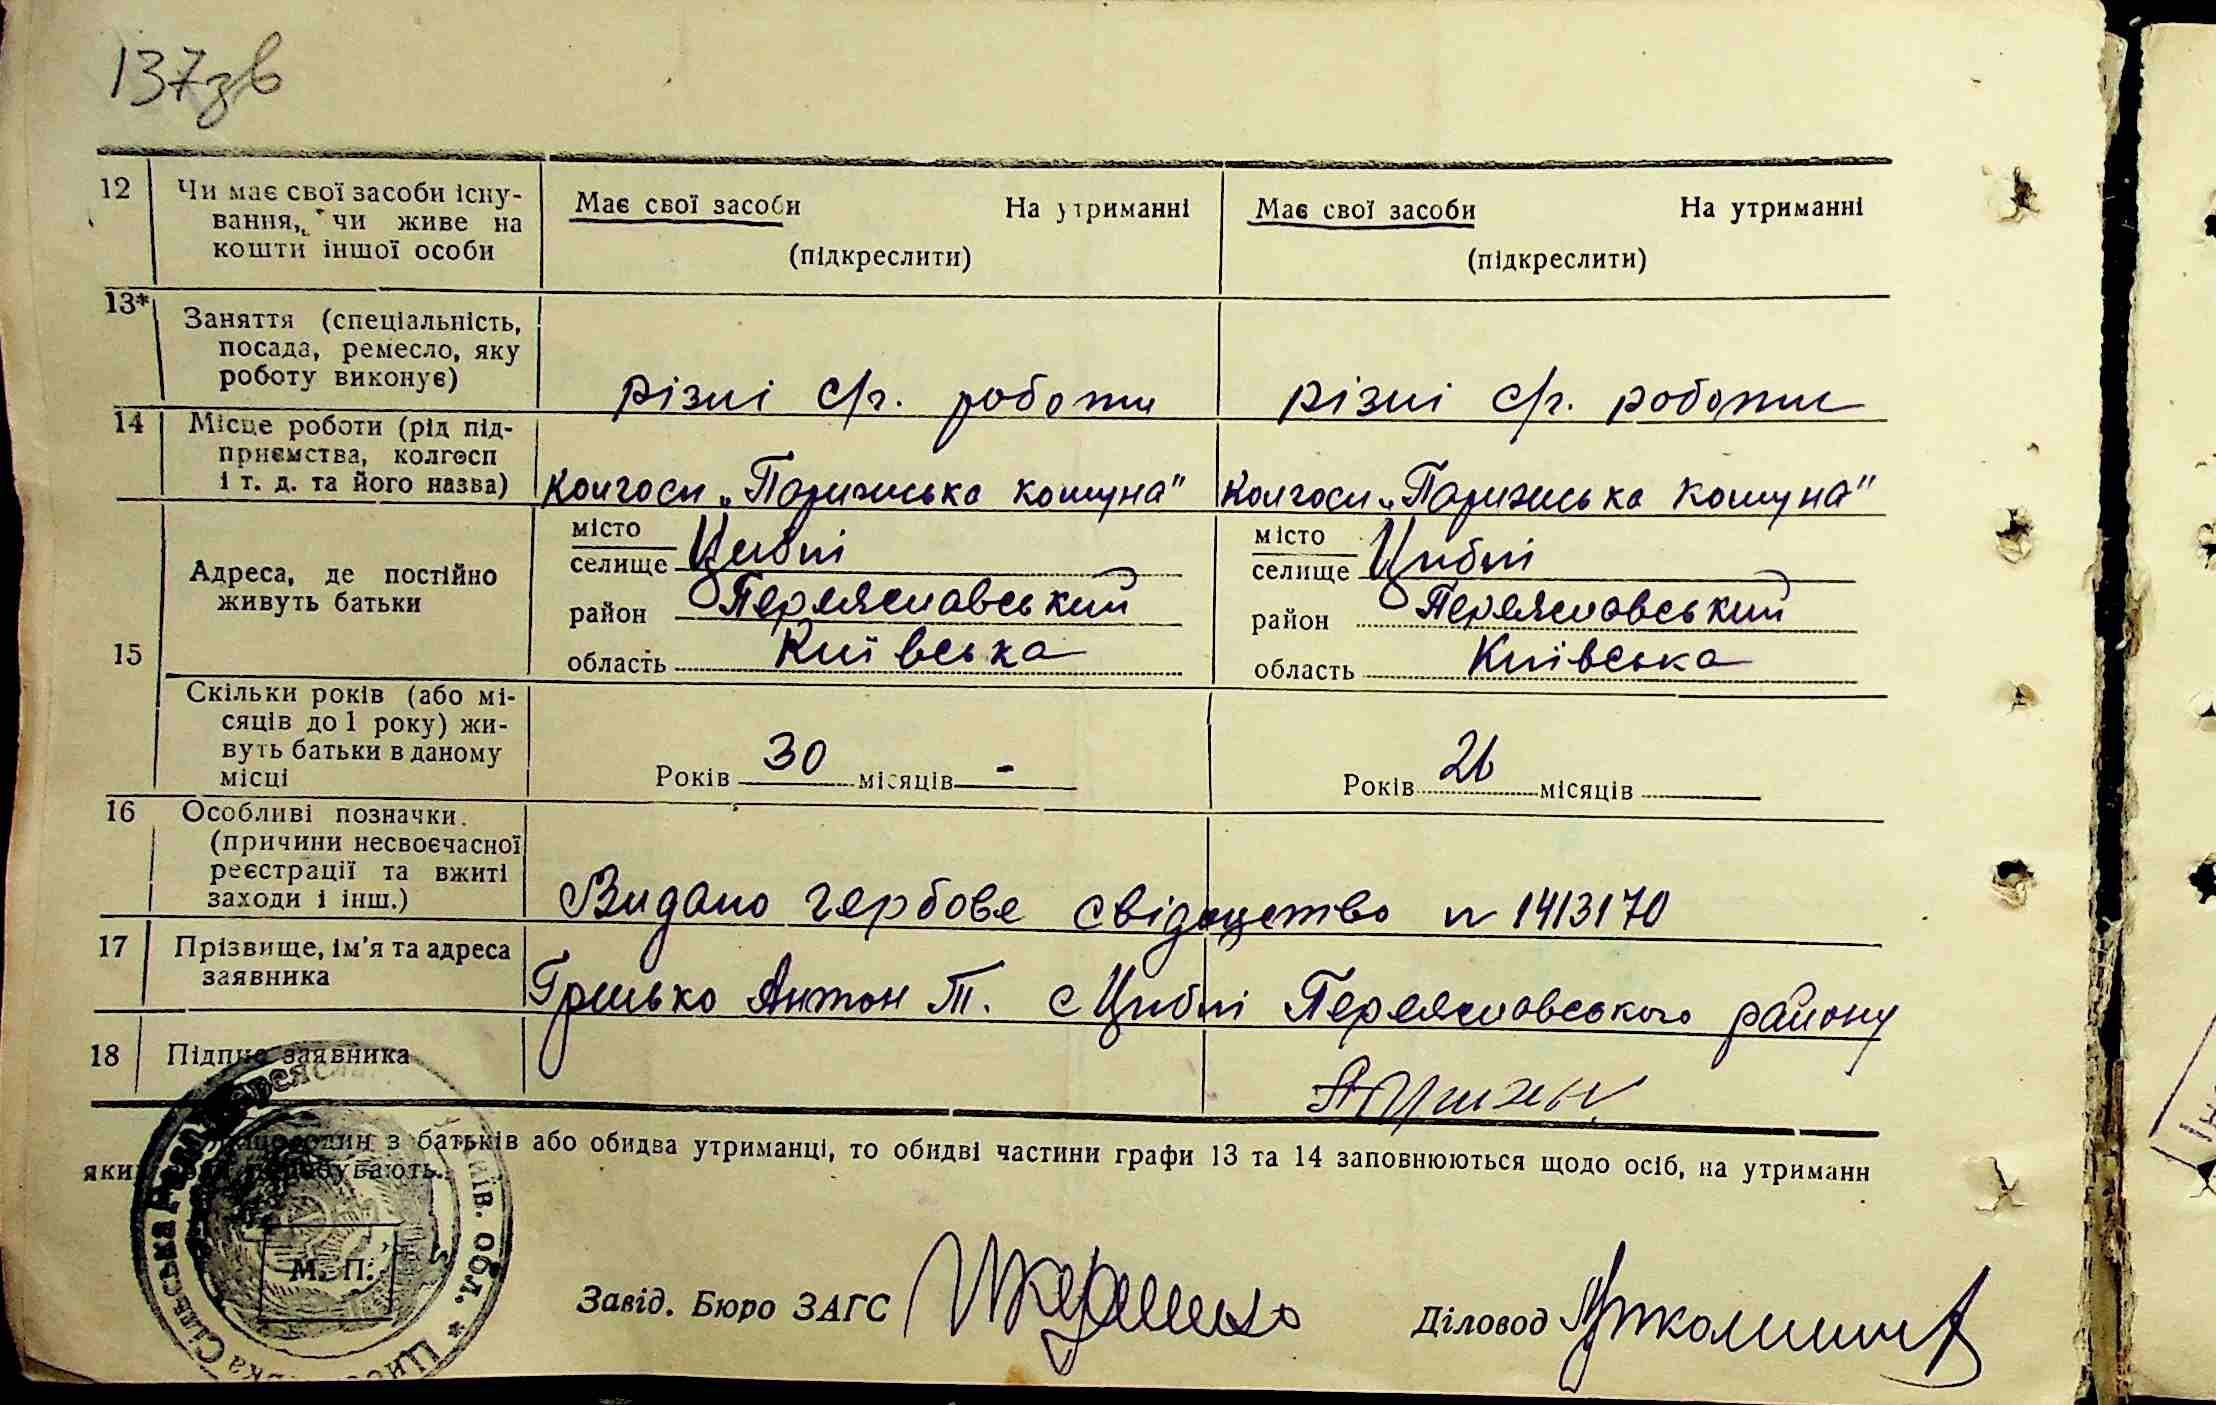 137зв
12 Чи має свої засоби існу-
вання, чи живе на
кошти іншої особи
Має свої засоби На утриманні
(підкреслити)
Має свої засоби На утриманні
(підкреслити)
13* Заняття (спеціальність,
посада, ремесло, яку
роботу виконує)
різні с/г. роботи
різні с/г. роботи
14 Місце роботи (рід під-
приємства, колгосп
і т. д. та його назва)
Колгосп „Паризька комуна"
Колгосп „Паризька комуна"
15 Адреса, де постійно
живуть батьки
місто
селище Циблі
район Переяславський
область Київська
місто
селище Циблі
район Переяславський
область Київська
Скільки років (або мі-
сяців до 1 року) жи-
вуть батьки в даному
місці
Років 30 місяців -
Років 26 місяців
16 Особливі позначки.
(причини несвоєчасної
реєстрації та вжиті
заходи і інш.)
Видано гербове свідоцтво n 1413170
17 Прізвище, ім'я та адреса
заявника
Гришко Антон Т. с Циблі Переяславського району
18 Підпис заявника
один з батьків або обидва утриманці, то обидві частини графи 13 та 14 заповнюються щодо осіб, на утриманн
М. П.
Київ. обл. * Сільська Рада
Завід. Бюро ЗАГС
Діловод